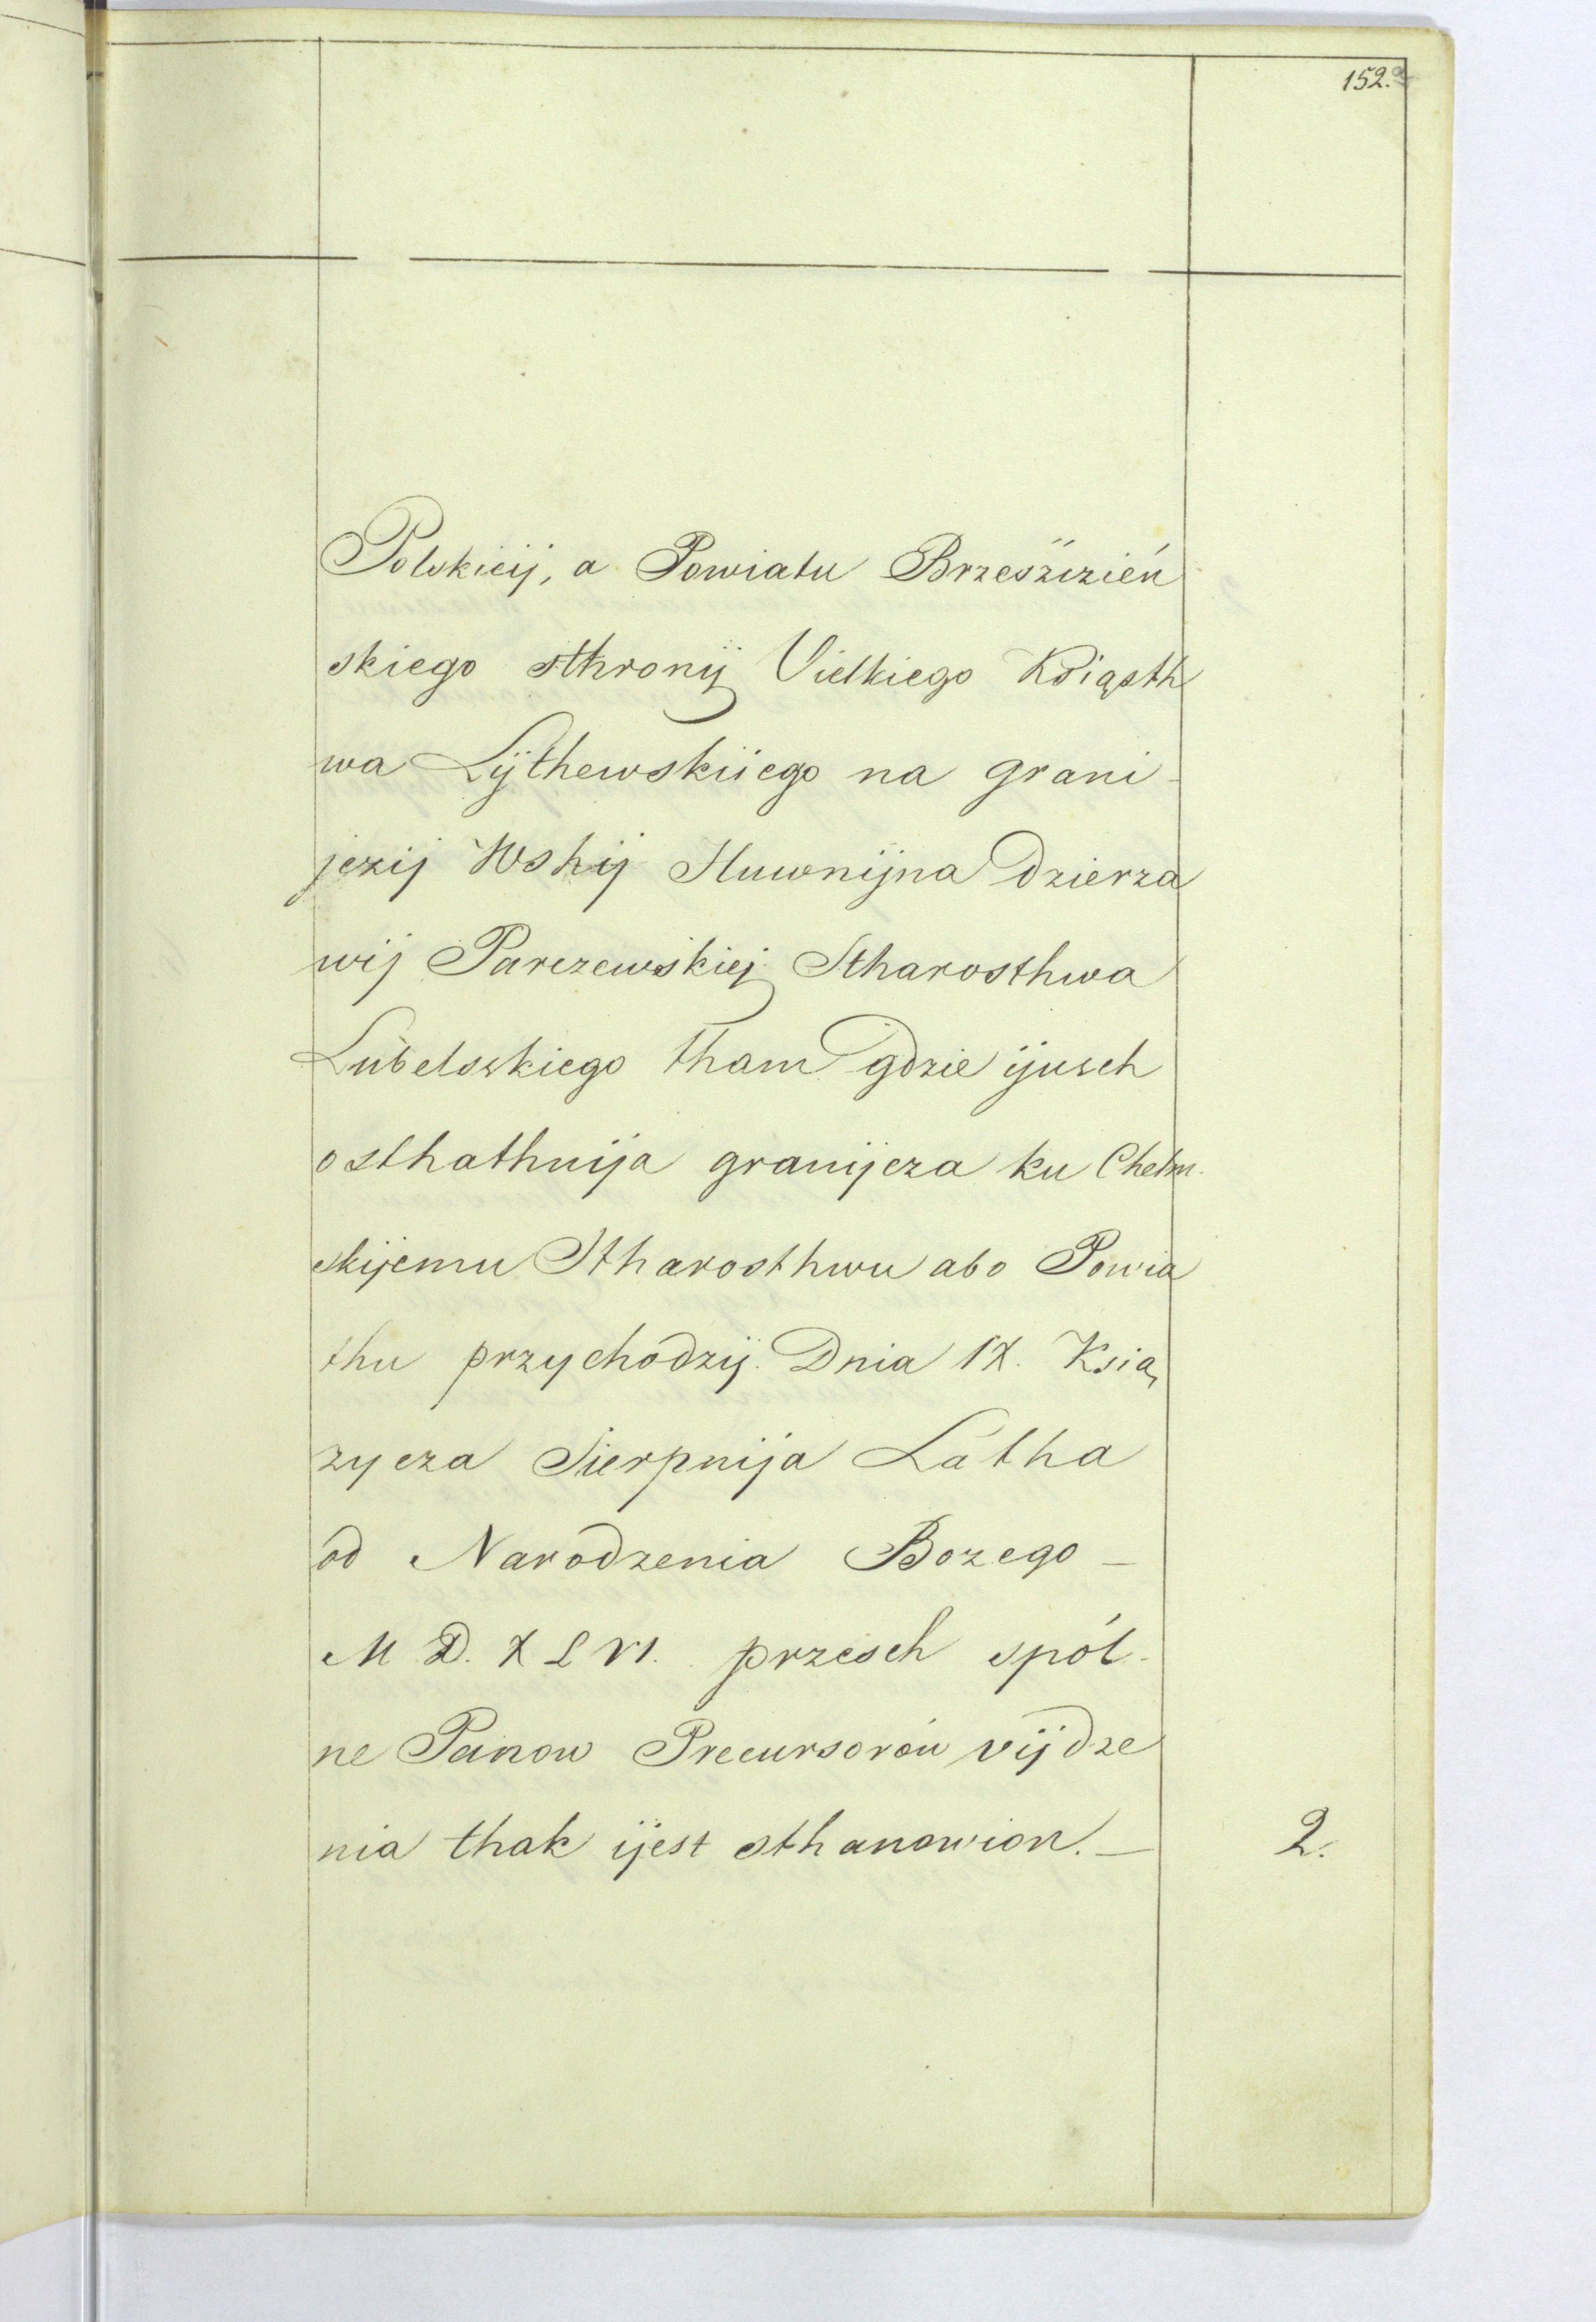 152.
Polskieij, a Powiatu Brzesżizień
skiego sthronÿ Vielkiego Kśiąsth
wa Lÿthewskiiego na grani-
jezij Wshij Huwnijna Dzierza
wij Parczewskiej Stharosthwa
Lubelsskiego tham gdzie ijusch
osthathnija granijcza ku Chelm-
skijemu Stharosthwu abo Powia
thu przychódzij. Dnia IX. Ksia̧
zycza Sierpnija Látha
ód Naródzenia Bozego —
M D. X L VI. przesch spól-
ne Panow Precursorów vijdze
nia thak ijest sthanowion. —
2.